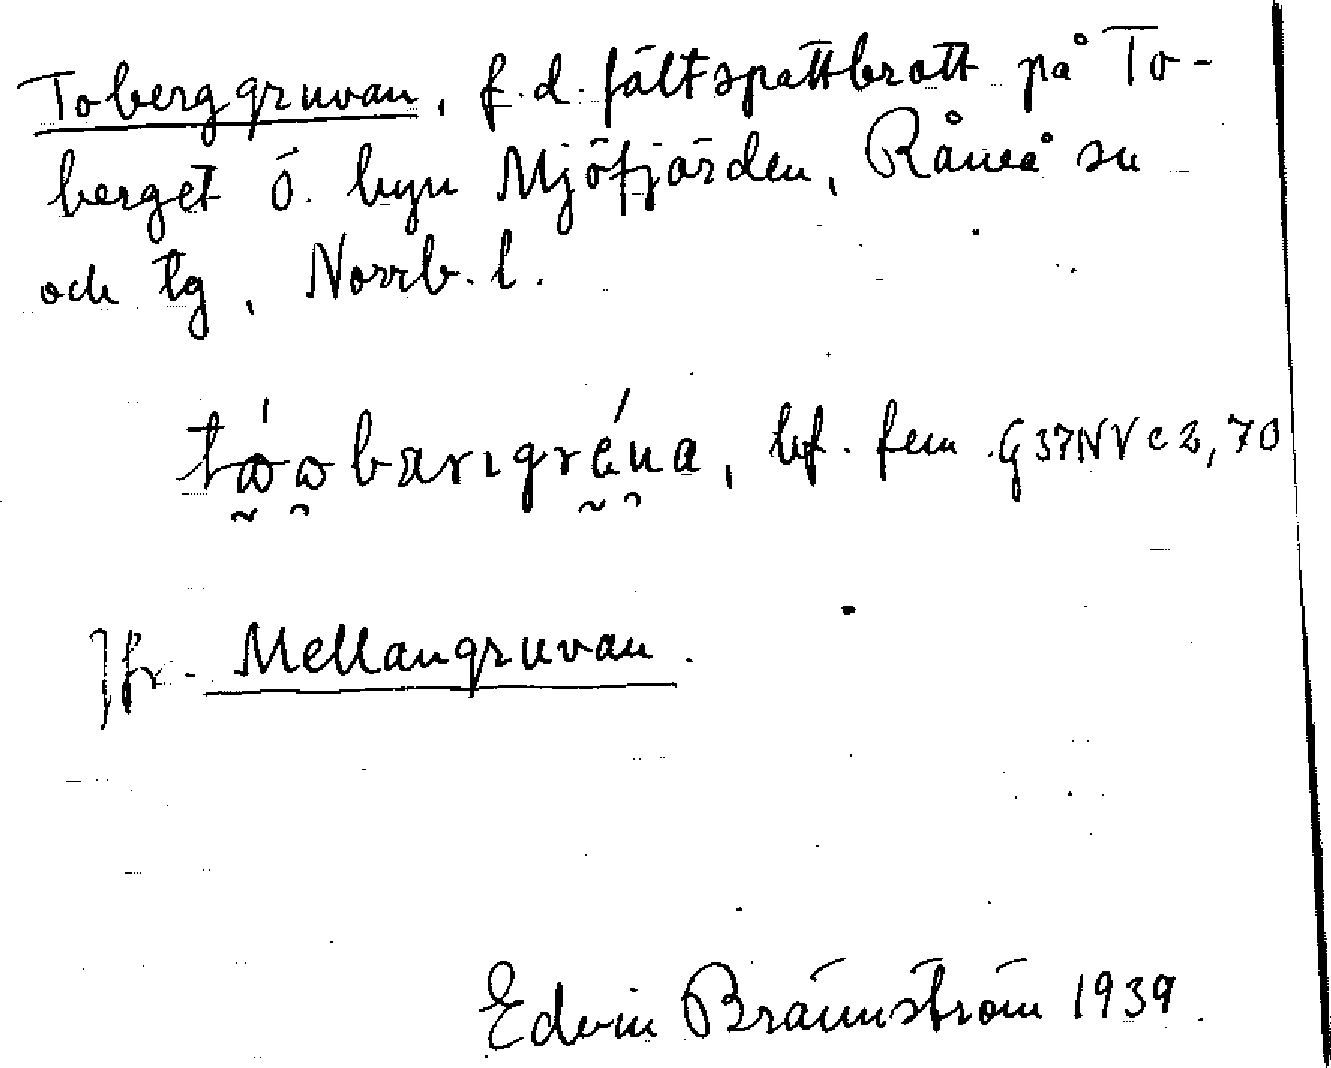 Toberggruvan, f.d. fältspattbrott på To-
berget ö. byn Mjöfjärden, Råneå sn
och tg, Norrb. l.
bf. fem. G37NVc2,70
Jfr. Mellangruvan.
Edvin Brännström 1939.